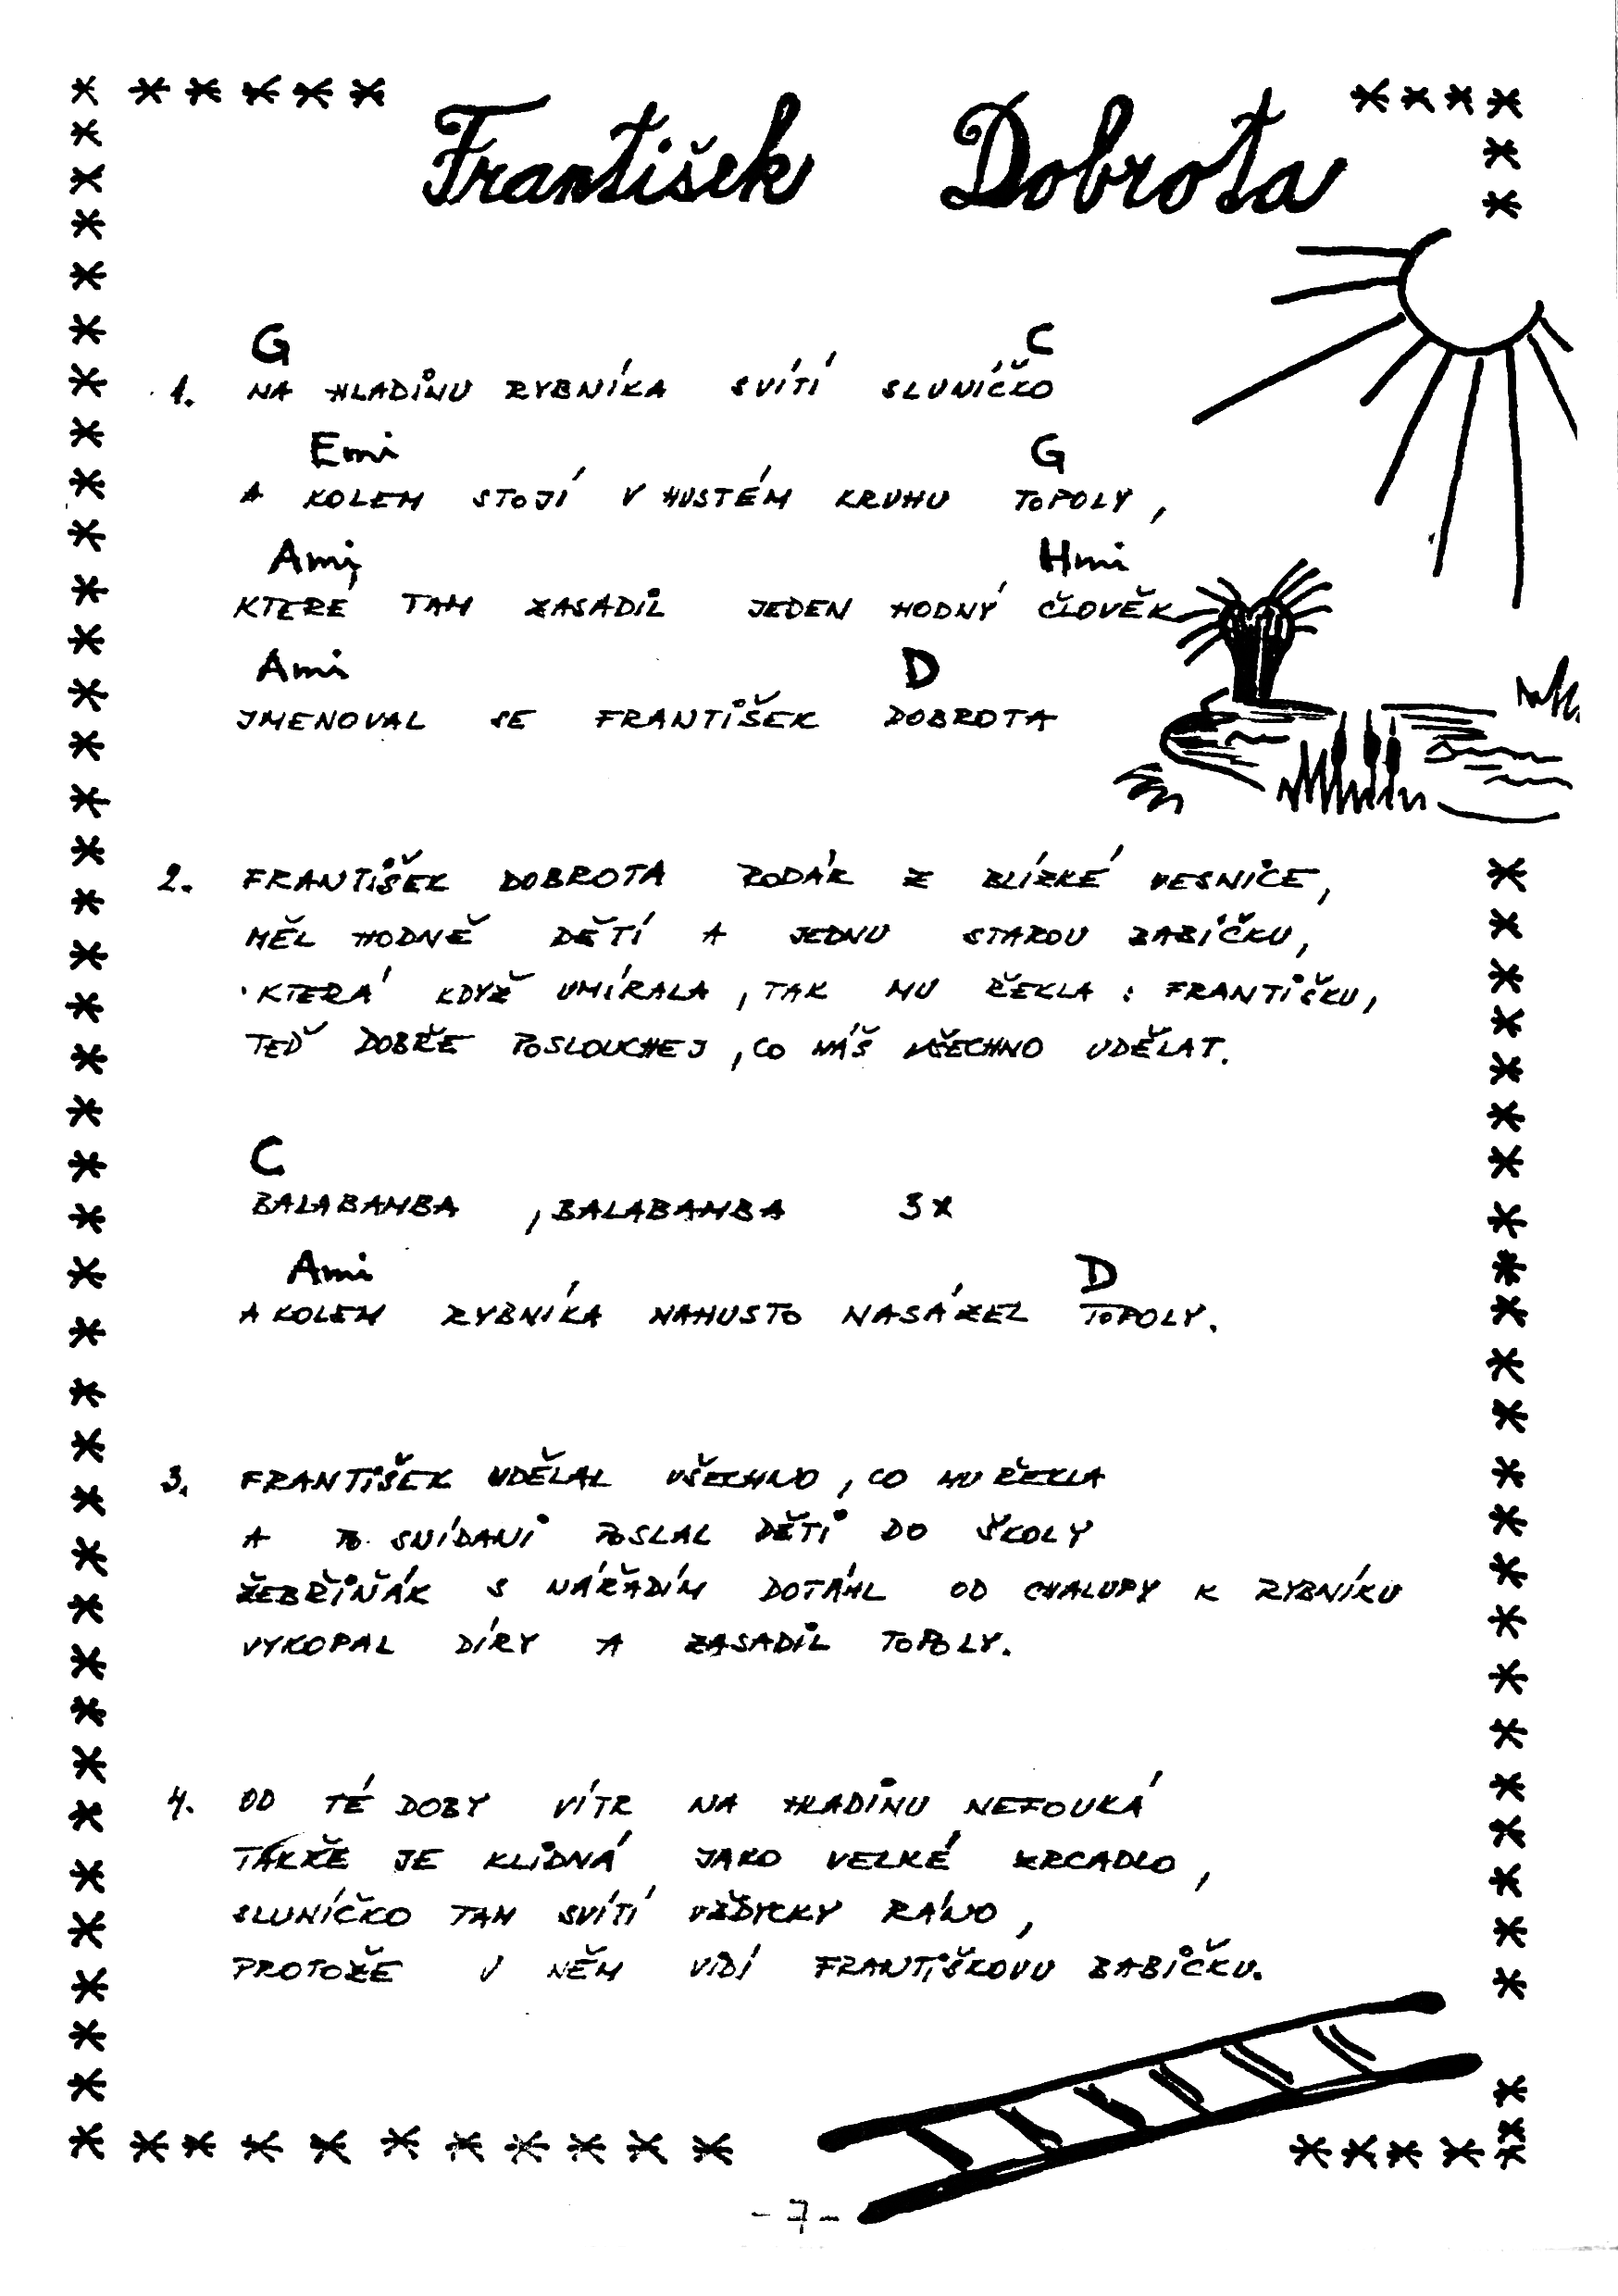 František Dobrota
G C
1. NA HLADINU RYBNÍKA SVÍTÍ SLUNÍČKO
Emi G
A KOLEM STOJÍ V HUSTÉM KRUHU TOPOLY,
Ami Hmi
KTERÉ TAM ZASADIL JEDEN HODNÝ ČLOVĚK
Ami D
JMENOVAL SE FRANTIŠEK DOBROTA
2. FRANTIŠEK DOBROTA RODÁK Z BLÍZKÉ VESNICE,
MĚL HODNĚ DĚTÍ A JEDNU STAROU BABÍČKU,
KTERÁ KDYŽ UMÍRALA, TAK MU ŘEKLA: FRANTIŠKU,
TEĎ DOBŘE POSLOUCHEJ, CO MÁŠ VŠECHNO UDĚLAT.
C
BALABAMBA, BALABAMBA 3x
Ami D
A KOLEM RYBNÍKA NAHUSTO NASÁZEL TOPOLY.
3. FRANTIŠEK UDĚLAL VŠECHNO, CO MU ŘEKLA
A PO SNÍDANI POSLAL DĚTI DO ŠKOLY
ŽEBŘIŇÁK S NÁŘADÍM DOTÁHL OD CHALUPY K RYBNÍKU
VYKOPAL DÍRY A ZASADIL TOPOLY.
4. OD TÉ DOBY VÍTR NA HLADINU NEFOUKÁ
TAKŽE JE KLIDNÁ JAKO VELKÉ ZRCADLO,
SLUNÍČKO TAM SVÍTÍ VŽDYCKY RÁNO,
PROTOŽE V NĚM VIDÍ FRANTIŠKOVU BABIČKU.
- 7 -